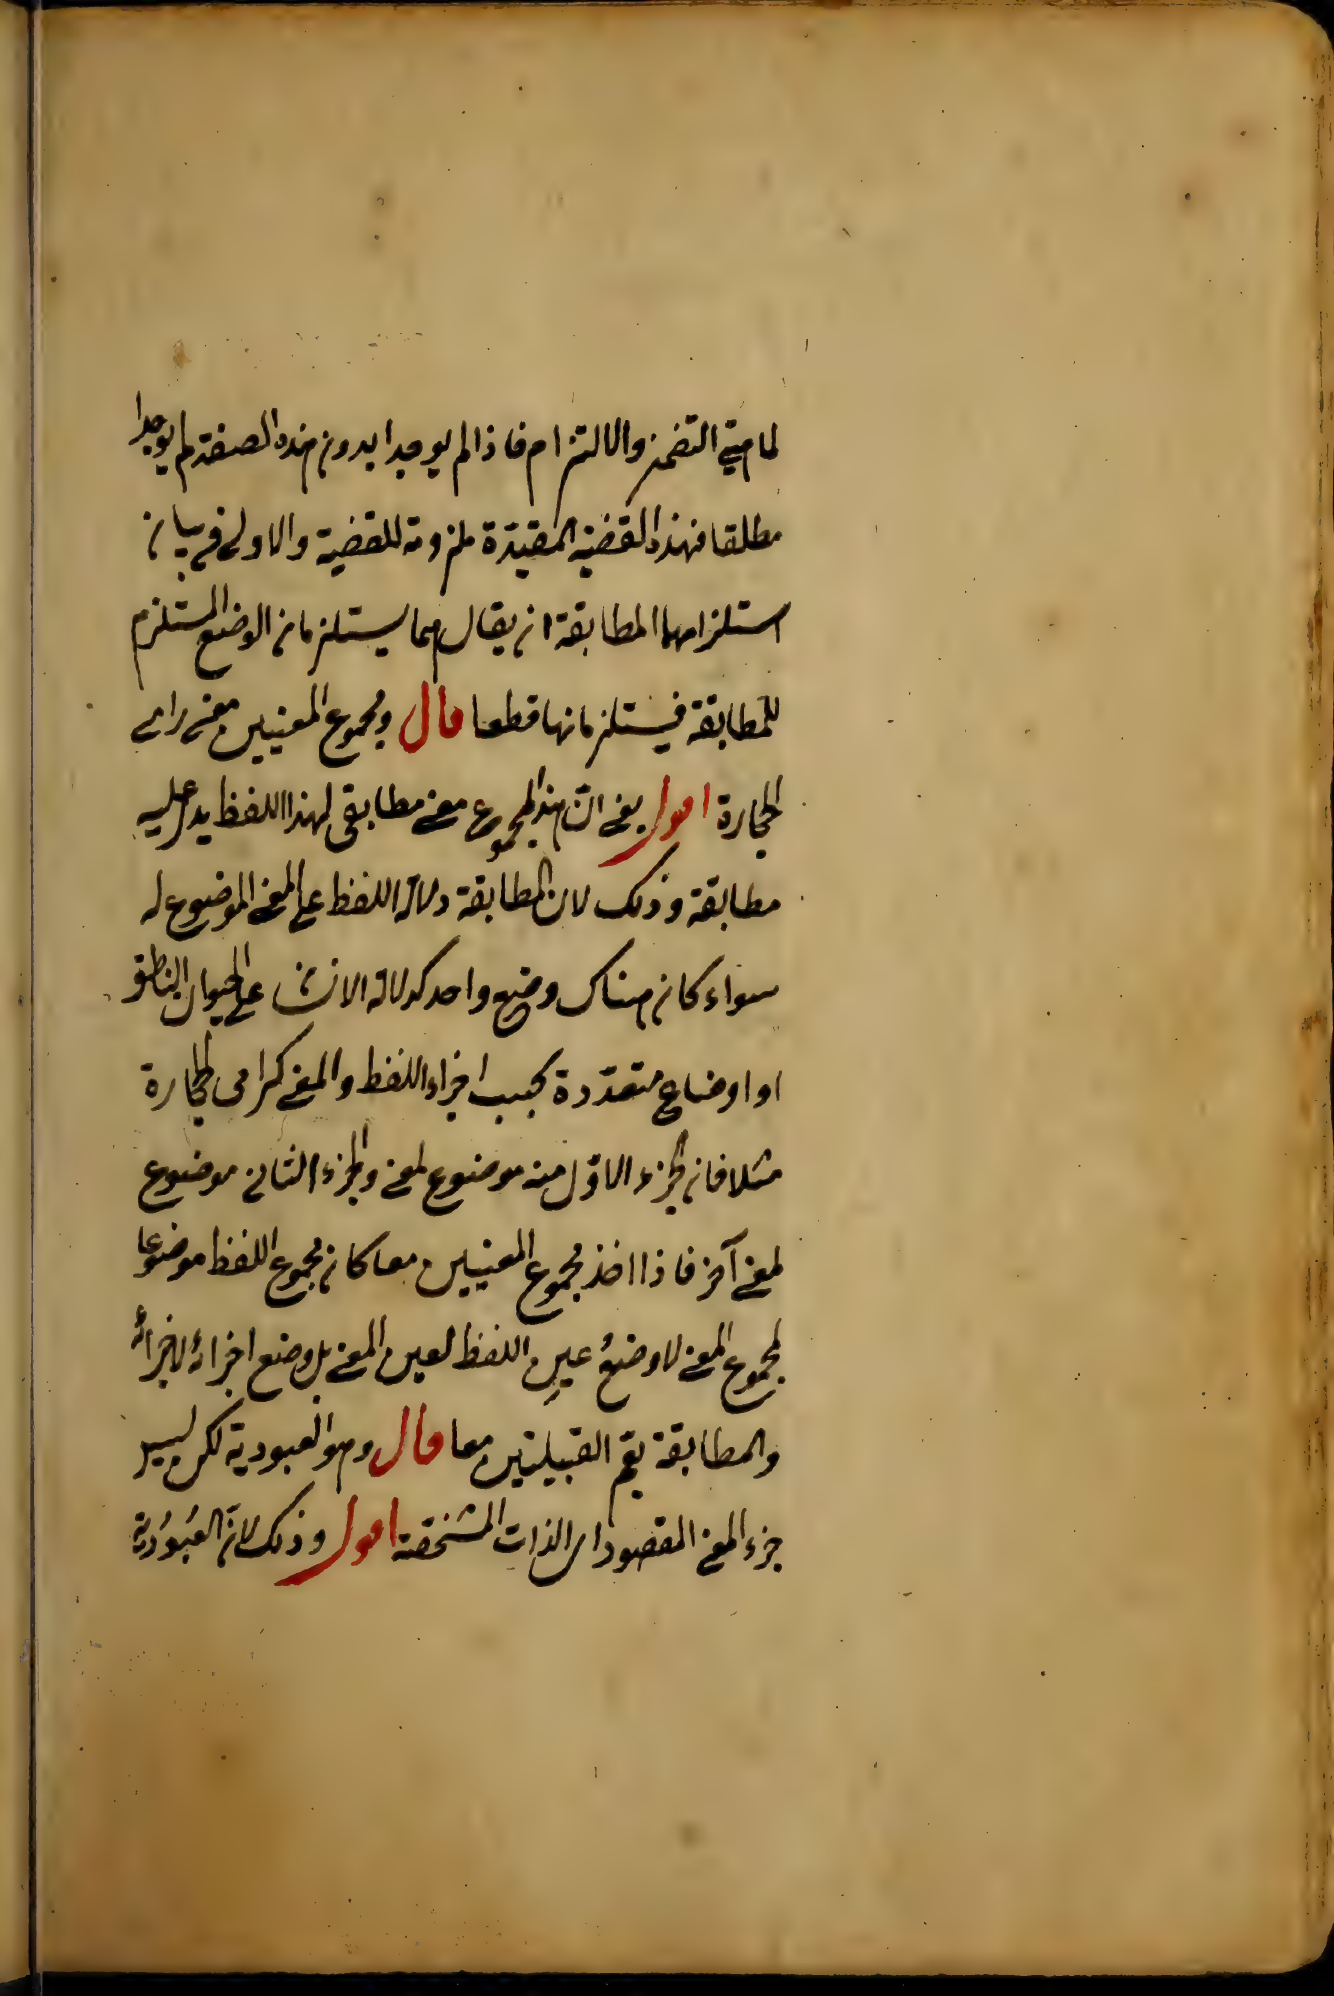 لماهيتي التضمن والالتزام فاذا لم يوجدا بدون هذه الصفة لم يوجدا
مطلقا فهذه القضية المقيدة ملزومة للقضية والاولى في بيان
استلزامهما المطابقة ان يقال هما يستلزمان الوضع المستلزم
للمطابقة فيستلزمانها قطعا قال ومجموع المعنيين معنى رامى
الحجارة اقول يعنى ان هذا المجموع معنى مطابقى لهذا اللفظ يدل عليه
مطابقة وذلك لان المطابقة دلالة اللفظ على المعنى الموضوع له
سواء كان هناك وضع واحد كدلالة الانسان على الحيوان الناطق
او اوضاع متعدّدة بحسب اجزاء اللفظ والمعنى كرامى الحجارة
مثلا فان الجزء الاوّل منه موضوع لمعنى والجزء الثانى موضوع
لمعنى آخر فاذا اخذ مجموع المعنيين معا كان مجموع اللفظ موضوعا
لمجموع المعنى لا وضعُ عينِ اللفظ لعين المعنى بل وضع اجزائه لاجزائه
والمطابقة تعم القبيلتين معا قال وهو العبودية لكن ليس
جزء المعنى المقصود اى الذات المشخصة اقول وذلك لانّ العُبُودُية